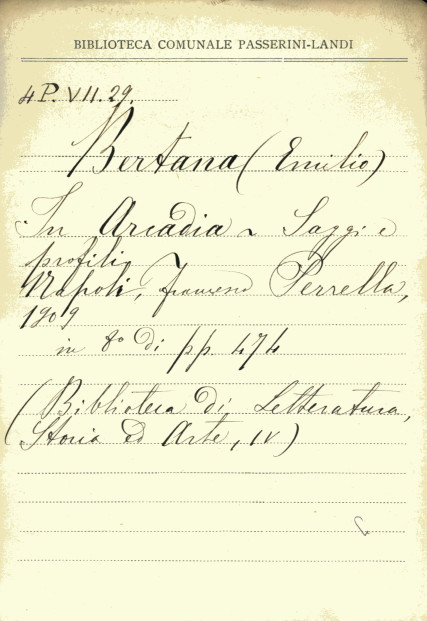 BIBLIOTECA COMUNALE PASSERINI-LANDI
4P. VII. 29.
Bertana (Emilio)
In Arcadia ~ Saggi e
profili ~
Napoli, Francesco Perrella,
1909
in 8° di pp. 474
(Biblioteca di Letteratura,
Storia ed Arte, IV)